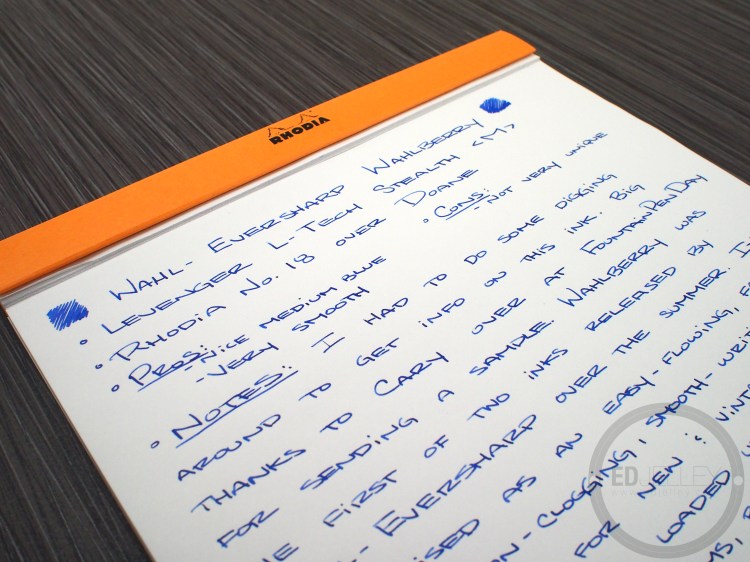 RHODIA
WAHL-EVERSHARP WAHLBERRY
• LEVENGER L-TECH STEALTH <M>
• RHODIA No. 18 OVER DOANE
• PROS: -NICE MEDIUM BLUE
-VERY SMOOTH
• CONS:
-NOT VERY UNIQUE
• NOTES: I HAD TO DO SOME DIGGING
AROUND TO GET INFO ON THIS INK. BIG
THANKS TO CARY OVER AT FOUNTAINPENDAY
FOR SENDING A SAMPLE. WAHLBERRY WAS
FIRST OF TWO INKS RELEASED BY
- EVERSHARP OVER THE SUMMER.
AS AN EASY-FLOWING,
-CLOGGING, SMOOTH-
FOR NEW &
LOADED
ED JELLEY